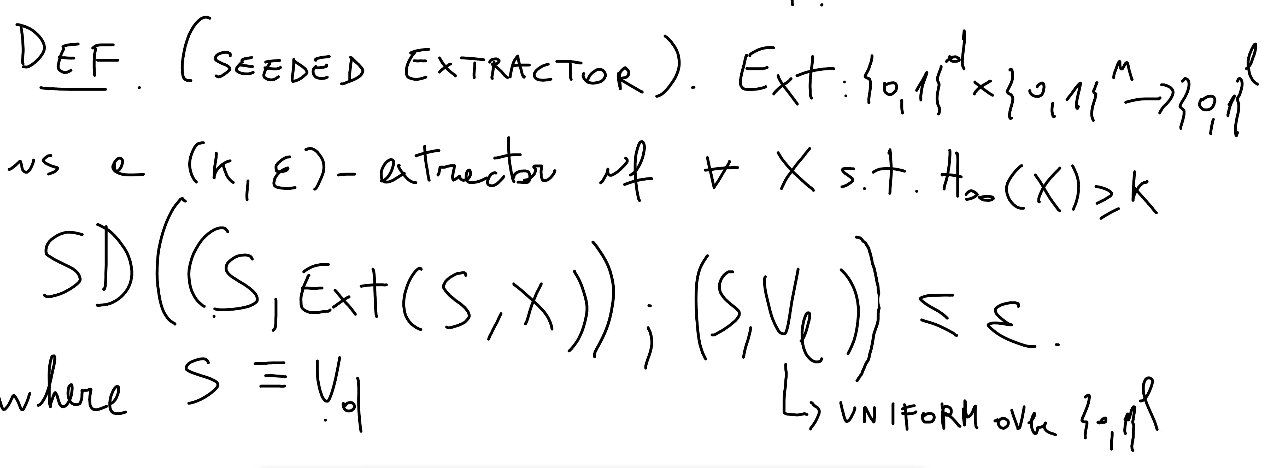 DEF. (SEEDED EXTRACTOR). Ext: {0,1}^d × {0,1}^n → {0,1}^l
is a (k, ε)-extractor if ∀ X s.t. H∞(X) ≥ k
SD((S, Ext(S, X)); (S, U_l)) ≤ ε.
where S ≡ U_d
↳ UNIFORM OVER {0,1}^l